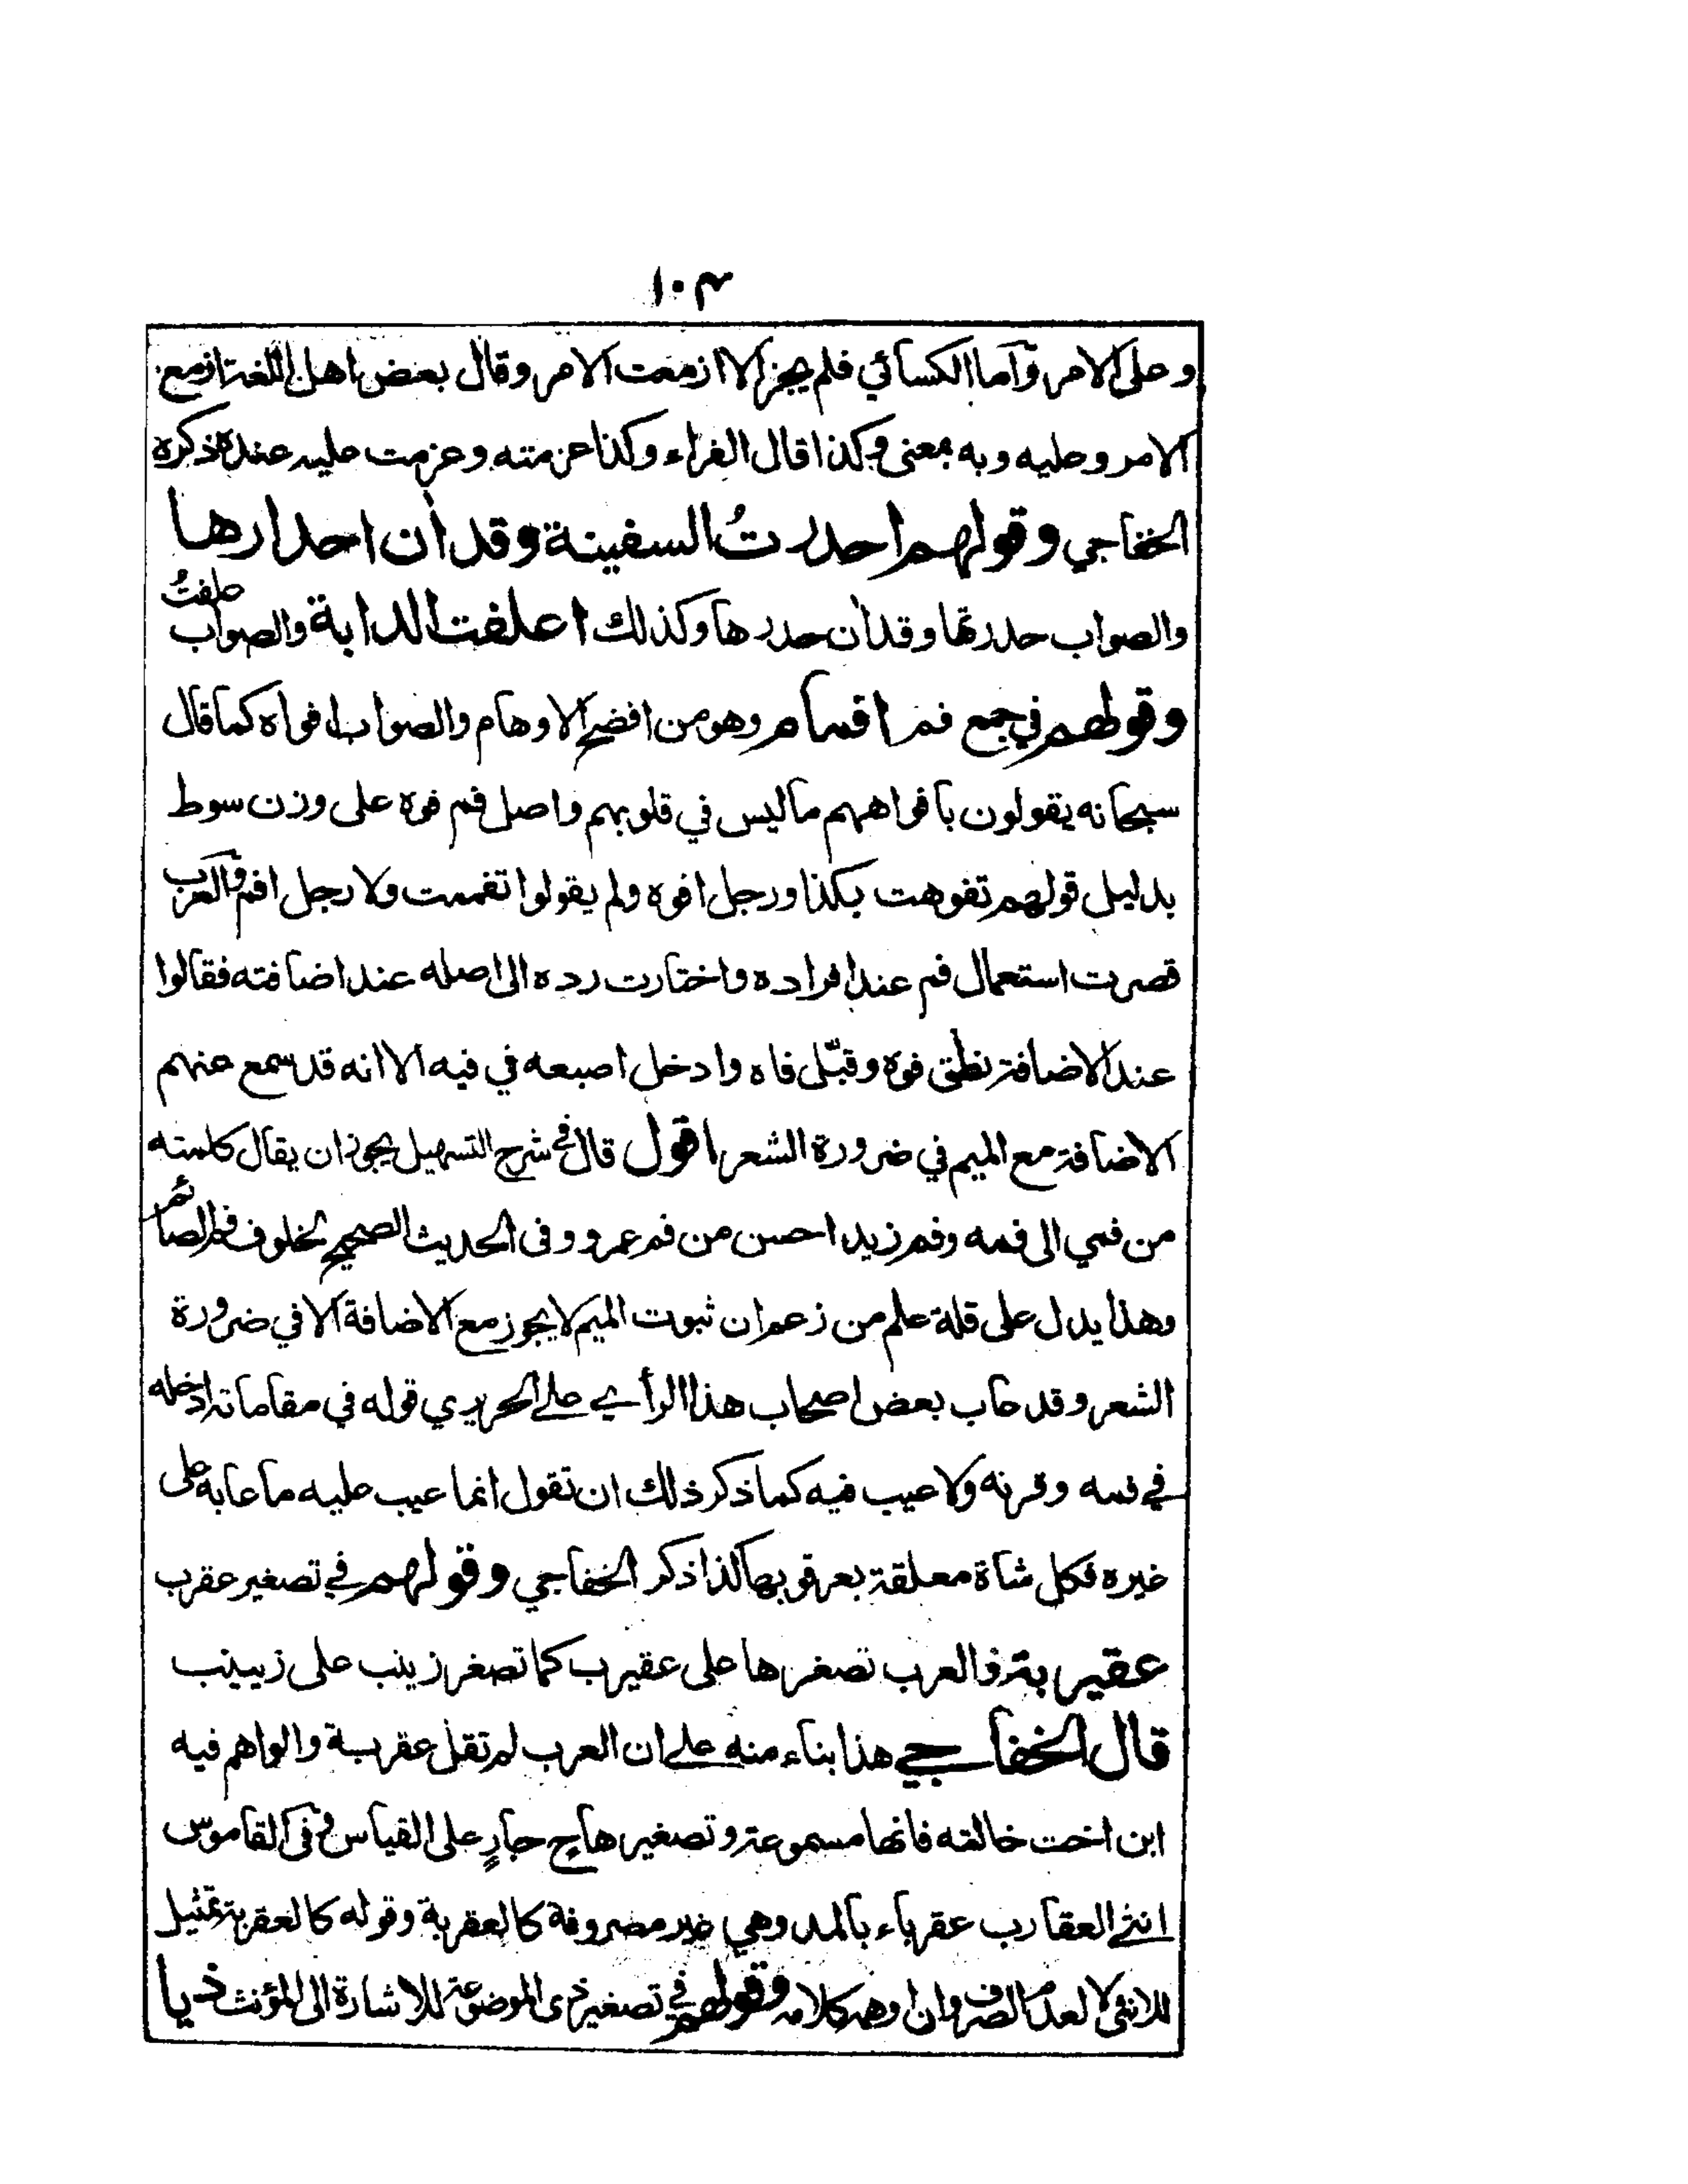 ١٠٣
وعلى الامر وآما الكسائي فلم يجز الا ازمعت الامر وقال بعض اهل اللغة ازمع
الامر وعليه وبه بمعنى وكذا قال الفراء وكذا عزمته وعزمت عليه عنده ذكره
الخفاجي وقولهم احدرتُ السفينة وقد ان احدارها
والصواب حدرتها وقد ان حدرها وكذلك اعلفت الدابة والصواب علفتُ
وقولهم في جمع فم افمام وهو من افضح الاوهام والصواب افواه كما قال
سبحانه يقولون بافواههم ما ليس في قلوبهم واصل فم فوه على وزن سوط
بدليل قولهم تفوهت بكذا ورجل افوه ولم يقولوا تفممت ولا رجل افم والعرب
قصرت استعمال فم عند افراده واختارت رده الى اصله عند اضافته فقالوا
عند الاضافة نطق فوه وقبّل فاه وادخل اصبعه في فيه الا انه قد سمع عنهم
الاضافة مع الميم في ضرورة الشعر اقول قال في شرح التسهيل يجوز ان يقال كلمته
من فمي الى فمه وفم زيد احسن من فم عمرو وفى الحديث الصحيح لخلوف فم الصائم
وهذا يدل على قلة علم من زعم ان ثبوت الميم لا يجوز مع الاضافة الا في ضرورة
الشعر وقد عاب بعض اصحاب هذا الرأي على الحريري قوله في مقاماته ادخله
في فمه وقرنه ولا عيب فيه كما ذكر ذلك ان تقول انما عيب عليه ما عابه على
غيره فكل شاة معلقة بعرقوبها كذا ذكر الخفاجي وقولهم في تصغير عقرب
عقيربة والعرب تصغرها على عقيرب كما تصغر زينب على زيينب
قال الخفاجي هذا بناء منه على ان العرب لم تقل عقربة والواهم فيه
ابن اخت خالته فانها مسموعة وتصغيرها ح جارٍ على القياس وفى القاموس
انثى العقارب عقرباء بالمد وهي غير مصروفة كالعقربة وقوله كالعقربة تمثيل
للانثى لا لعدم الصرف وان اوهم كلامه وقولهم في تصغير ذى الموضوعة للاشارة الى المؤنث ذيا